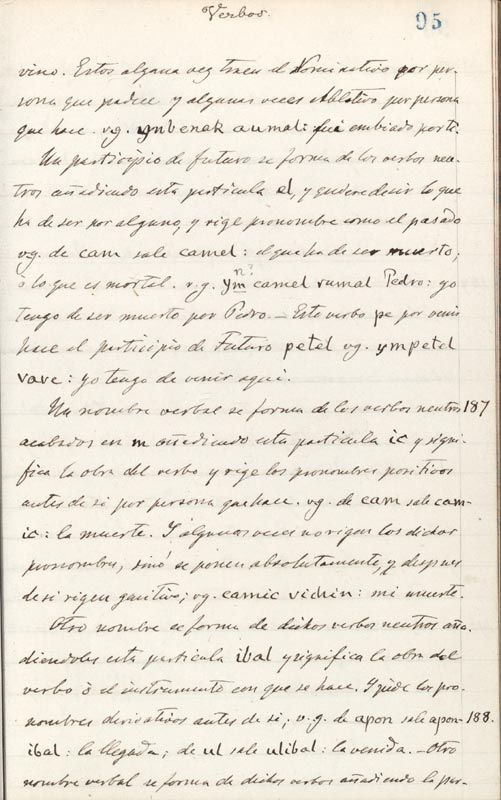 Verbos.
95
vino. Estos alguna vez traen el Nominativo por per-
sona que padece y algunas veces Ablativo por persona
que hace. vg. ynbenak aumal: fui embiado por ti.
Un participio de futuro se forma de los verbos neu-
tros añadiendo esta particula el, y quiere desir lo que
ha de ser por alguno, y rige pronombre como el pasado
vg. de cam sale camel: el que ha de ser muerto;
ò lo que es mortal. v.g. ym n? camel rumal Pedro: yo
tengo de ser muerto por Pedro. — Este verbo pe por venir
hace el participio de Futuro petel vg. ympetel
vave: yo tengo de venir aqui.
Un nombre verbal se forma de los verbos neutros 187
acabados en m añadiendo esta particula ic y signi-
fica la obra del verbo y rige los pronombres positivos
antes de si por persona que hace. vg. de cam sale cam-
ic: la muerte. Y algunas veces no rigen los dichos
pronombres, sinó se ponen absolutamente, y despues
de si rigen genitivo; vg. camic vichin: mi muerte.
Otro nombre se forma de dichos verbos neutros aña-
diendoles esta particula ibal y significa la obra del
verbo ò el instrumento con que se hace. Y pide los pro-
nombres derivativos antes de si; v.g. de apon sale apon- 188.
ibal: la llegada; de ul sale ulibal: la venida. — Otro
nombre verbal se forma de dichos verbos añadiendo la par-